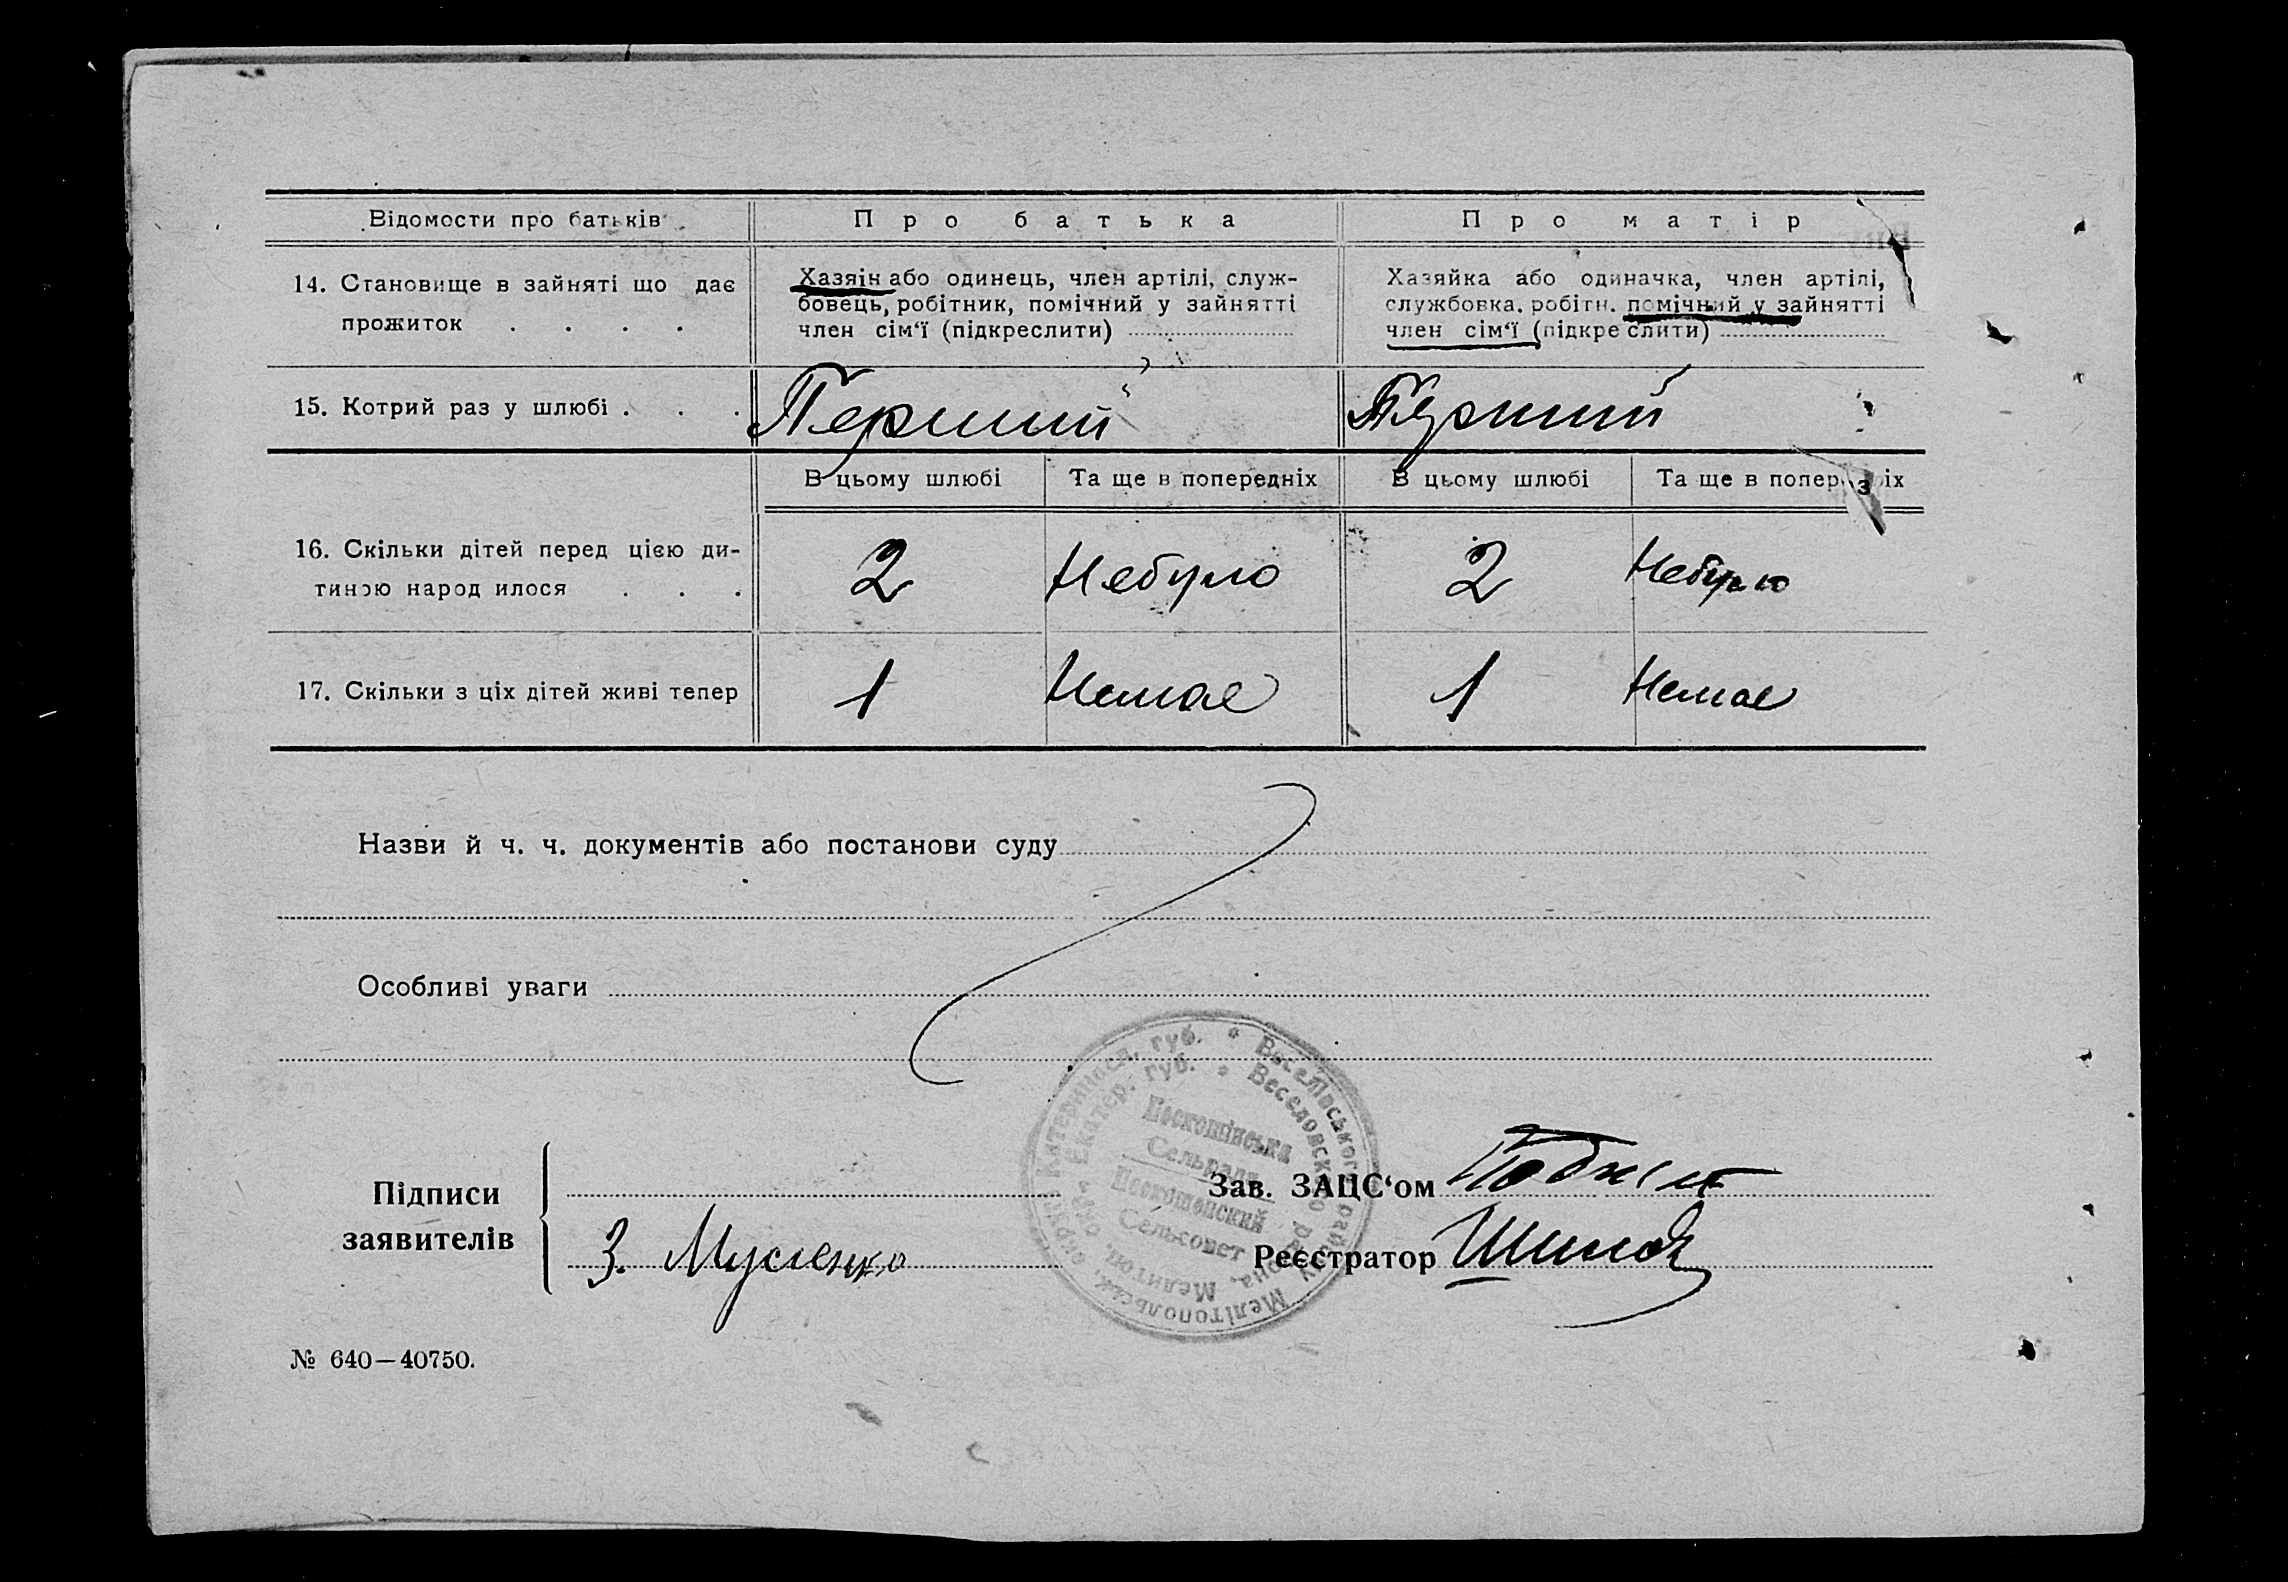 Відомости про батьків
Про батька
Про матір
14. Становище в зайняті що дає
прожиток . . . .
Хазяін або одинець, член артілі, служ-
бовець, робітник, помічний у зайнятті
член сім‘ї (підкреслити)
Хазяйка або одиначка, член артілі,
службовка, робітн. помічний у зайнятті
член сім‘ї (підкреслити)
15. Котрий раз у шлюбі . . .
Перший
Перший
В цьому шлюбі
Та ще в попередніх
В цьому шлюбі
Та ще в попередніх
16. Скільки дітей перед цією ди-
тиною народилося . . .
2
Небуло
2
Небуло
17. Скільки з ціх дітей живі тепер
1
Немає
1
Немає
Назви й ч. ч. документів або постанови суду
Особливі уваги
Катериносл. губ. * Веселівського району Мелітопольськ. округи
Екатер. губ. * Веселовского района, Мелитоп. окр.
Сельрада
Сельсовет
Підписи
заявителів
З. Мусиенко
Зав. ЗАЦС‘ом
Реєстратор
№ 640—40750.